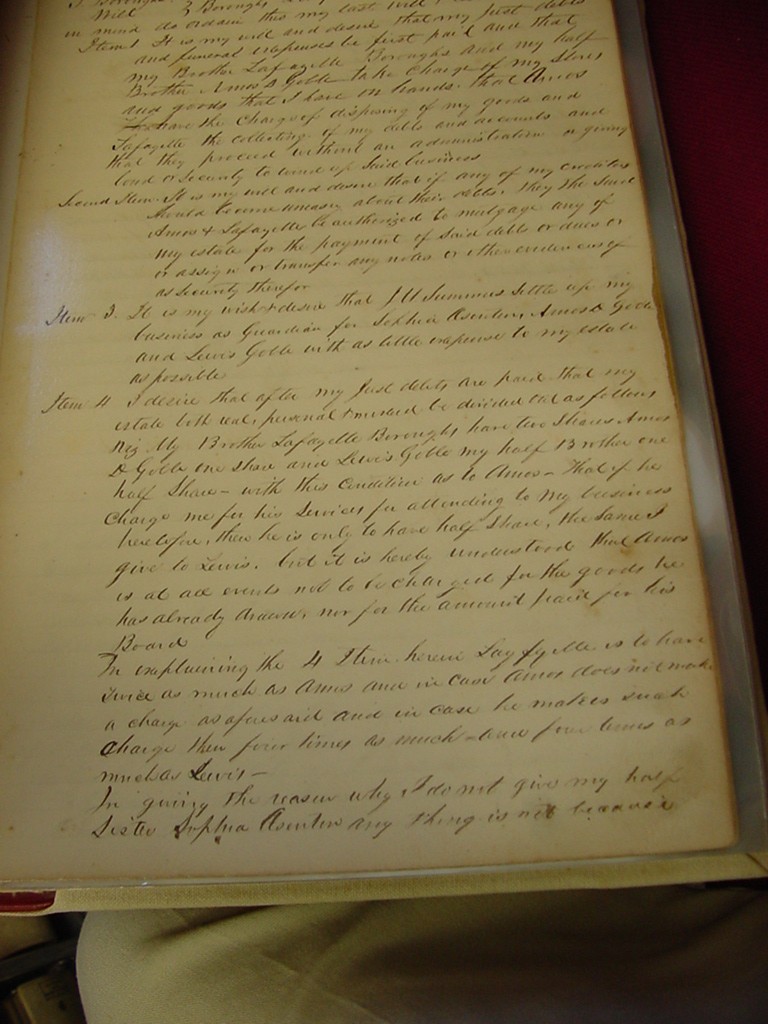 Will
in mind do ordain this my last will
Item 1 It is my will and desire that my just debts
and funeral expenses be first paid and that
my Brother Lafayette Boroughs and my half
Brother Amos D Goble take charge of my Stores
and goods that I have in hands. that Amos
have the Charge of disposing of my goods and
Lafayette the collecting of my debts and accounts and
that they proceed without an administration or giving
bond or security to wind up said business
Second Item. It is my will and desire that if any of my creditors
should become uneasy about their debts. they the said
Amos & Lafayette be authorized to mortgage any of
my estate for the payment of said debts or dues or
or assign or transfer any notes or other evidences of
as security therefor
Item 3. It is my wish & desire that J W Summers Settle up my
business as Guardian for Sophia Amos D Goble
and Lewis Goble with as little expense to my estate
as possible
Item 4 I desire that after my Just debts are paid that my
estate both real, personal & mixed be divided out as follows
Viz My Brother Lafayette Boroughs have two Shares Amos
D Goble one share and Lewis Goble my half Brother one
half Share – with this Condition as to Amos – That if he
Charge me for his Services for attending to my business
heretofore, then he is only to have half Share, the same I
give to Lewis. but it is hereby understood that Amos
is at all events not to be charged for the goods he
has already drawn, nor for the amount paid for his
Board
In explaining the 4 Item herein Layfyette is to have
twice as much as Amos and in case Amos does not make
a charge as aforesaid and in case he makes such
charge then four times as much – and four times as
much as Lewis –
In giving the reason why I do not give my half
Sister Sophia any thing is not because